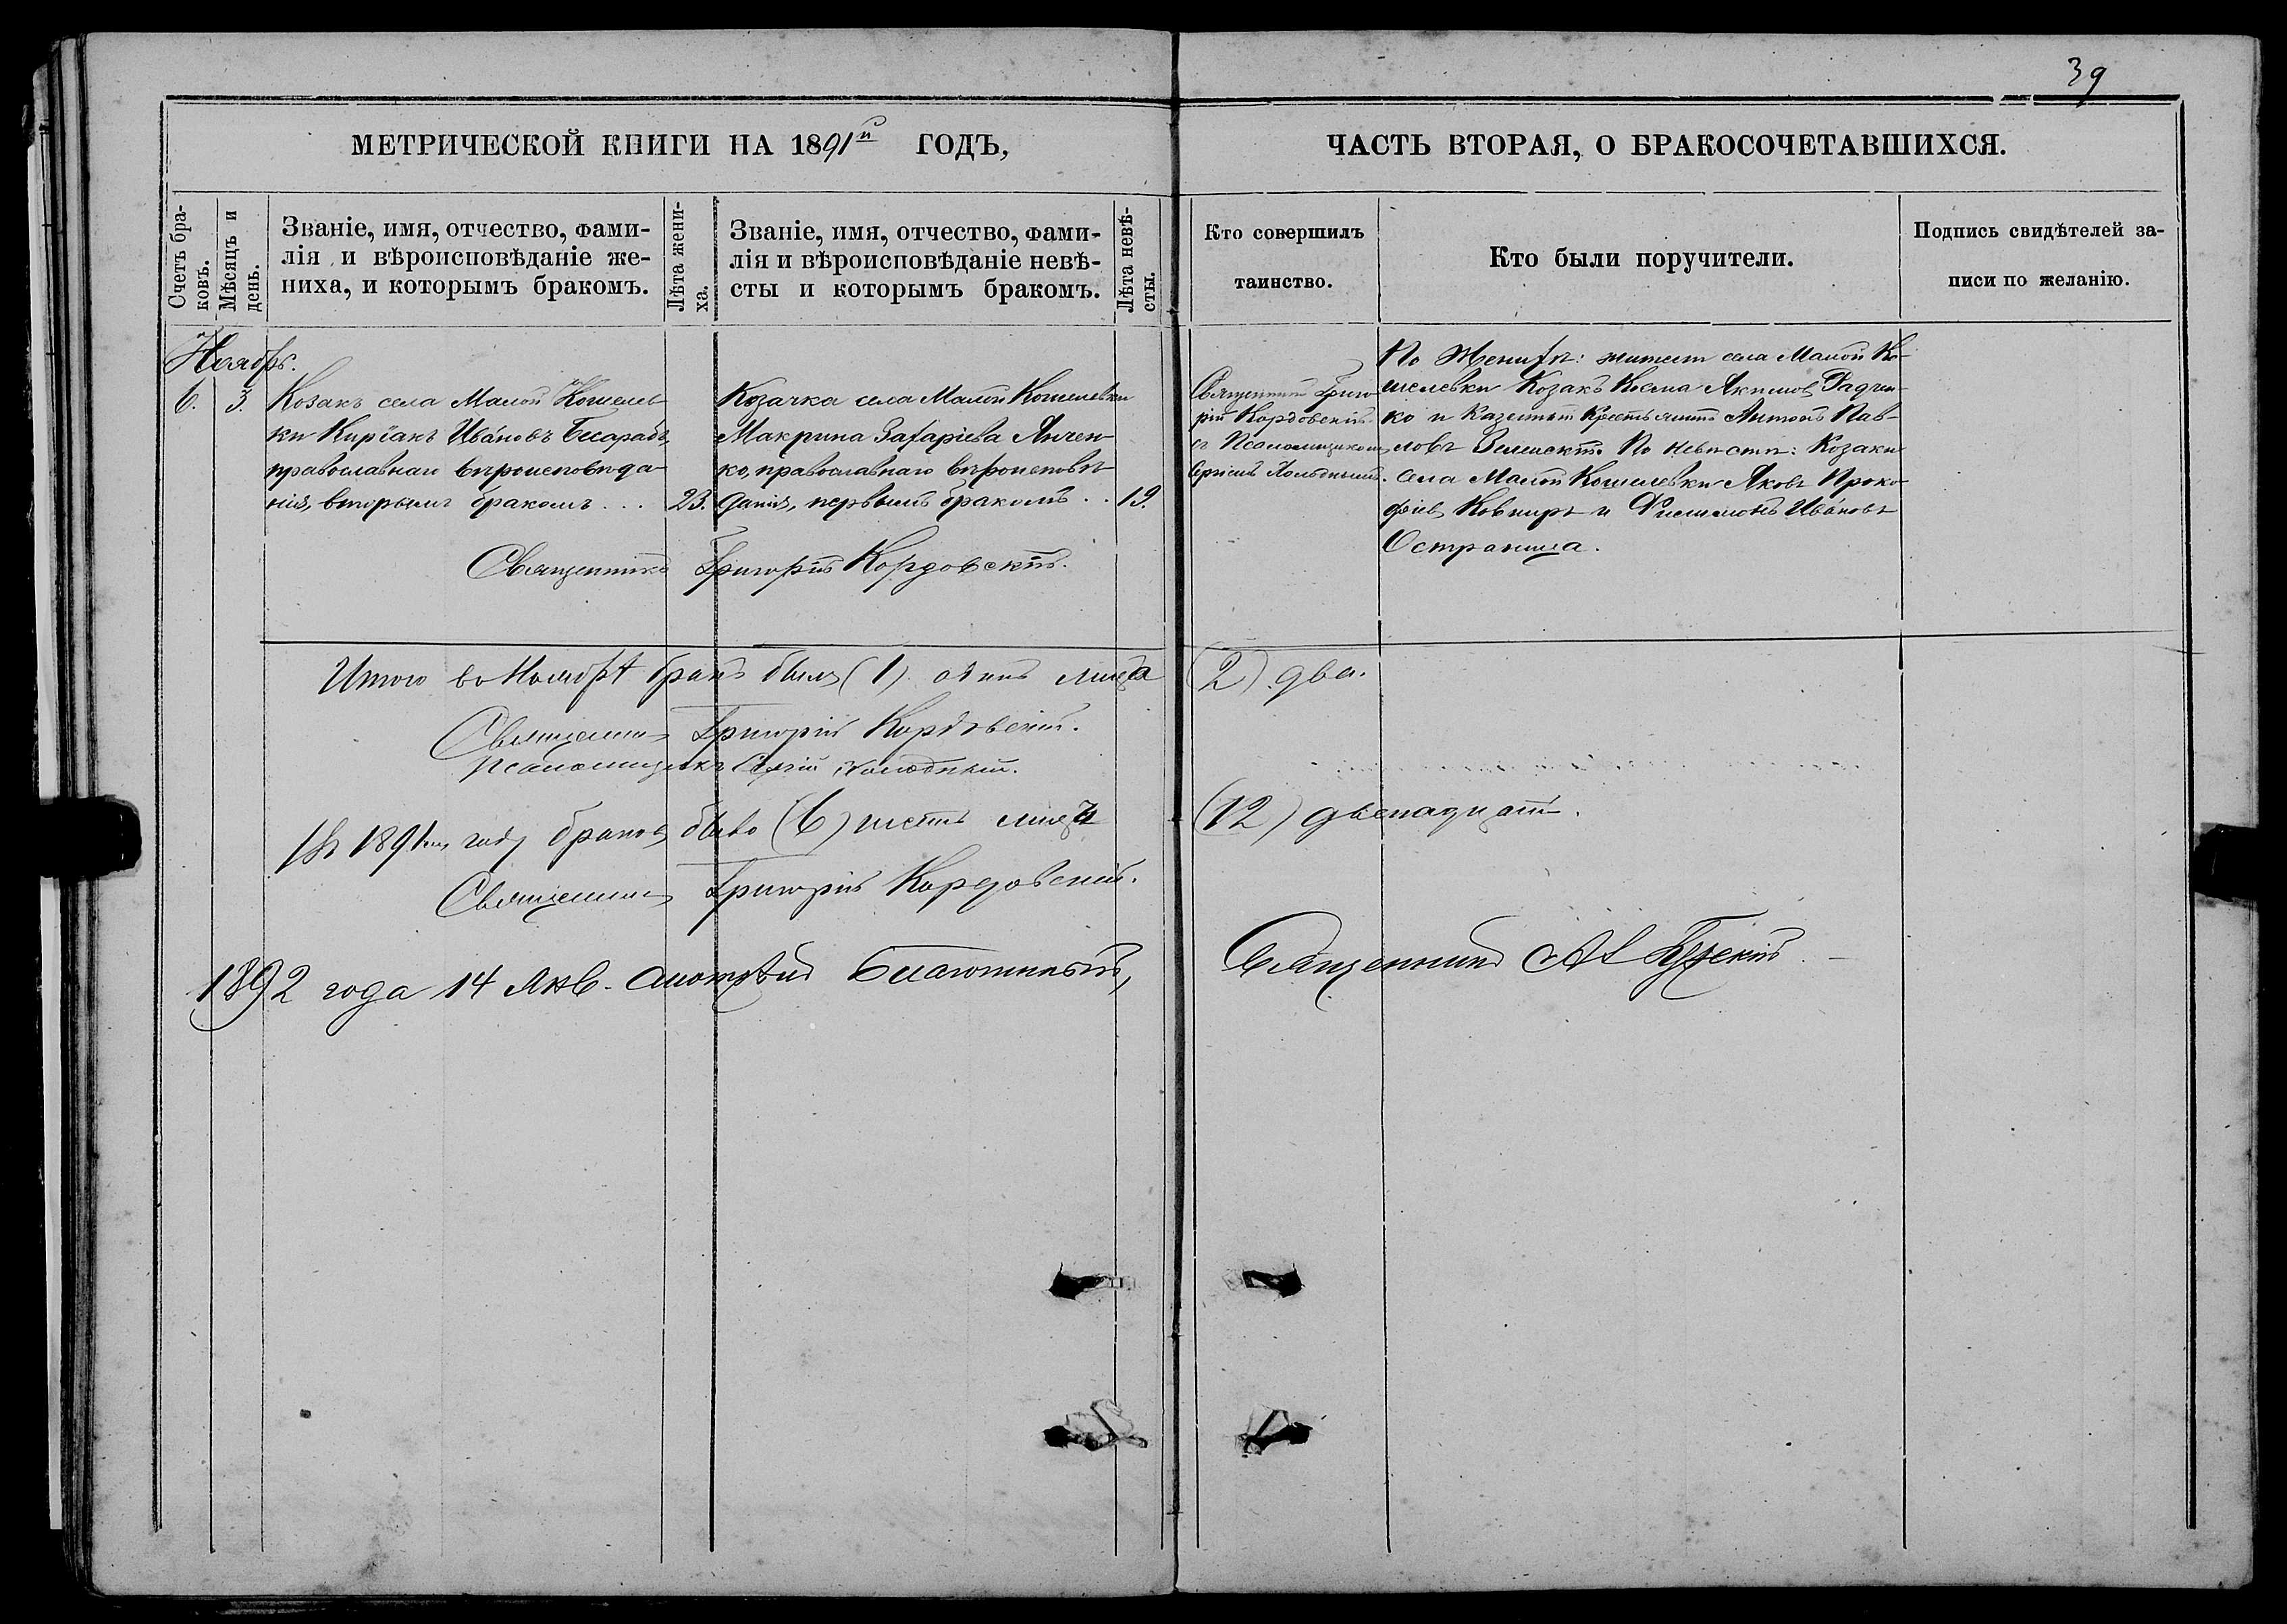 39
МЕТРИЧЕСКОЙ КНИГИ НА 1891й ГОДЪ,
ЧАСТЬ ВТОРАЯ, О БРАКОСОЧЕТАВШИХСЯ.
Счетъ бра-
ковъ.
Мѣсяцъ и
день.
Званіе, имя, отчество, фами-
лія и вѣроисповѣданіе же-
ниха, и которымъ бракомъ.
Лѣта жени-
ха.
Званіе, имя, отчество, фами-
лія и вѣроисповѣданіе невѣ-
сты и которымъ бракомъ.
Лѣта невѣ-
сты.
Кто совершилъ
таинство.
Кто были поручители.
Подпись свидѣтелей за-
писи по желанію.
Ноябрь.
6. 3. Козакъ села Малой Кошелев-
ки Киріакъ Ивановъ Бесарабъ,
православнаго вѣроисповѣда-
нія, вторымъ бракомъ . . . 23.
Козачка села Малой Кошелевки
Макрина Захаріева Янчен-
ко, православнаго вѣроисповѣ-
данія, первымъ бракомъ . . 19.
Священникъ Григо-
рій Кордовскій
съ Псаломщикомъ
Сергіемъ Холоднымъ.
По Женихѣ: жители села Малой Ко-
шелевки Козакъ Косма Акимовъ Радчен-
ко и Казенный Крестьянинъ Антонъ Пав-
ловъ По невѣстѣ: Козаки
села Малой Кошелевки Яковъ Проко-
фіевъ Ковниръ и Филимонъ Ивановъ
Остраница.
Священникъ Григорій Кордовскій.
Итого въ Ноябрѣ бракъ былъ (1) одинъ лица (2) два.
Священникъ Григорій Кордовскій.
Псаломщикъ Сергій Холодный.
Въ 1891мъ году браковъ было (6) шесть лицъ (12) двенадцать.
Священникъ Григорій Кордовскій.
1892 года 14 Янв. смотрѣлъ Благочинный, Священникъ